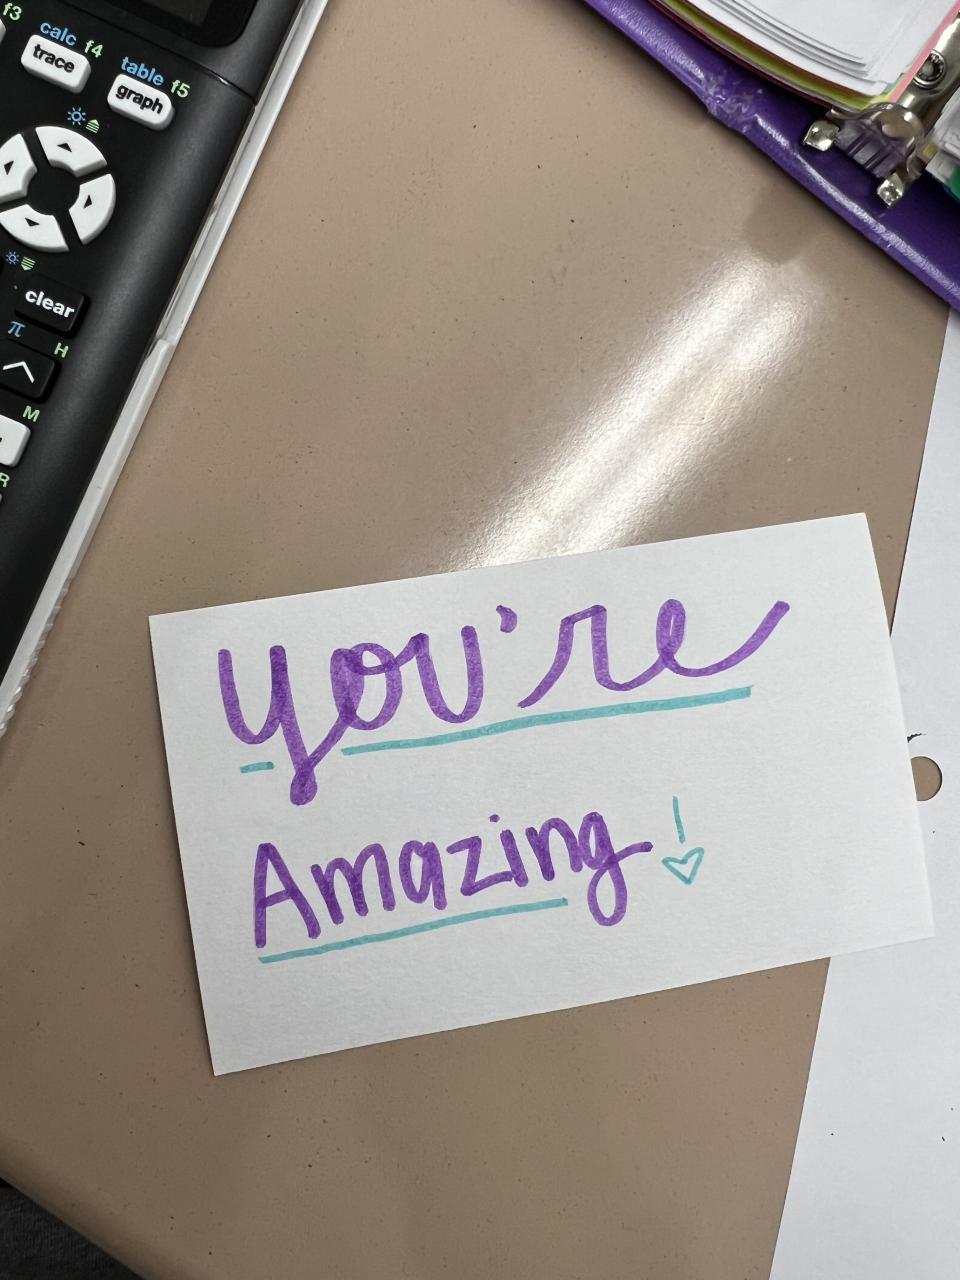 f3
calc f4
trace
table f5
graph
clear
π
H
M
R
you're
Amazing!